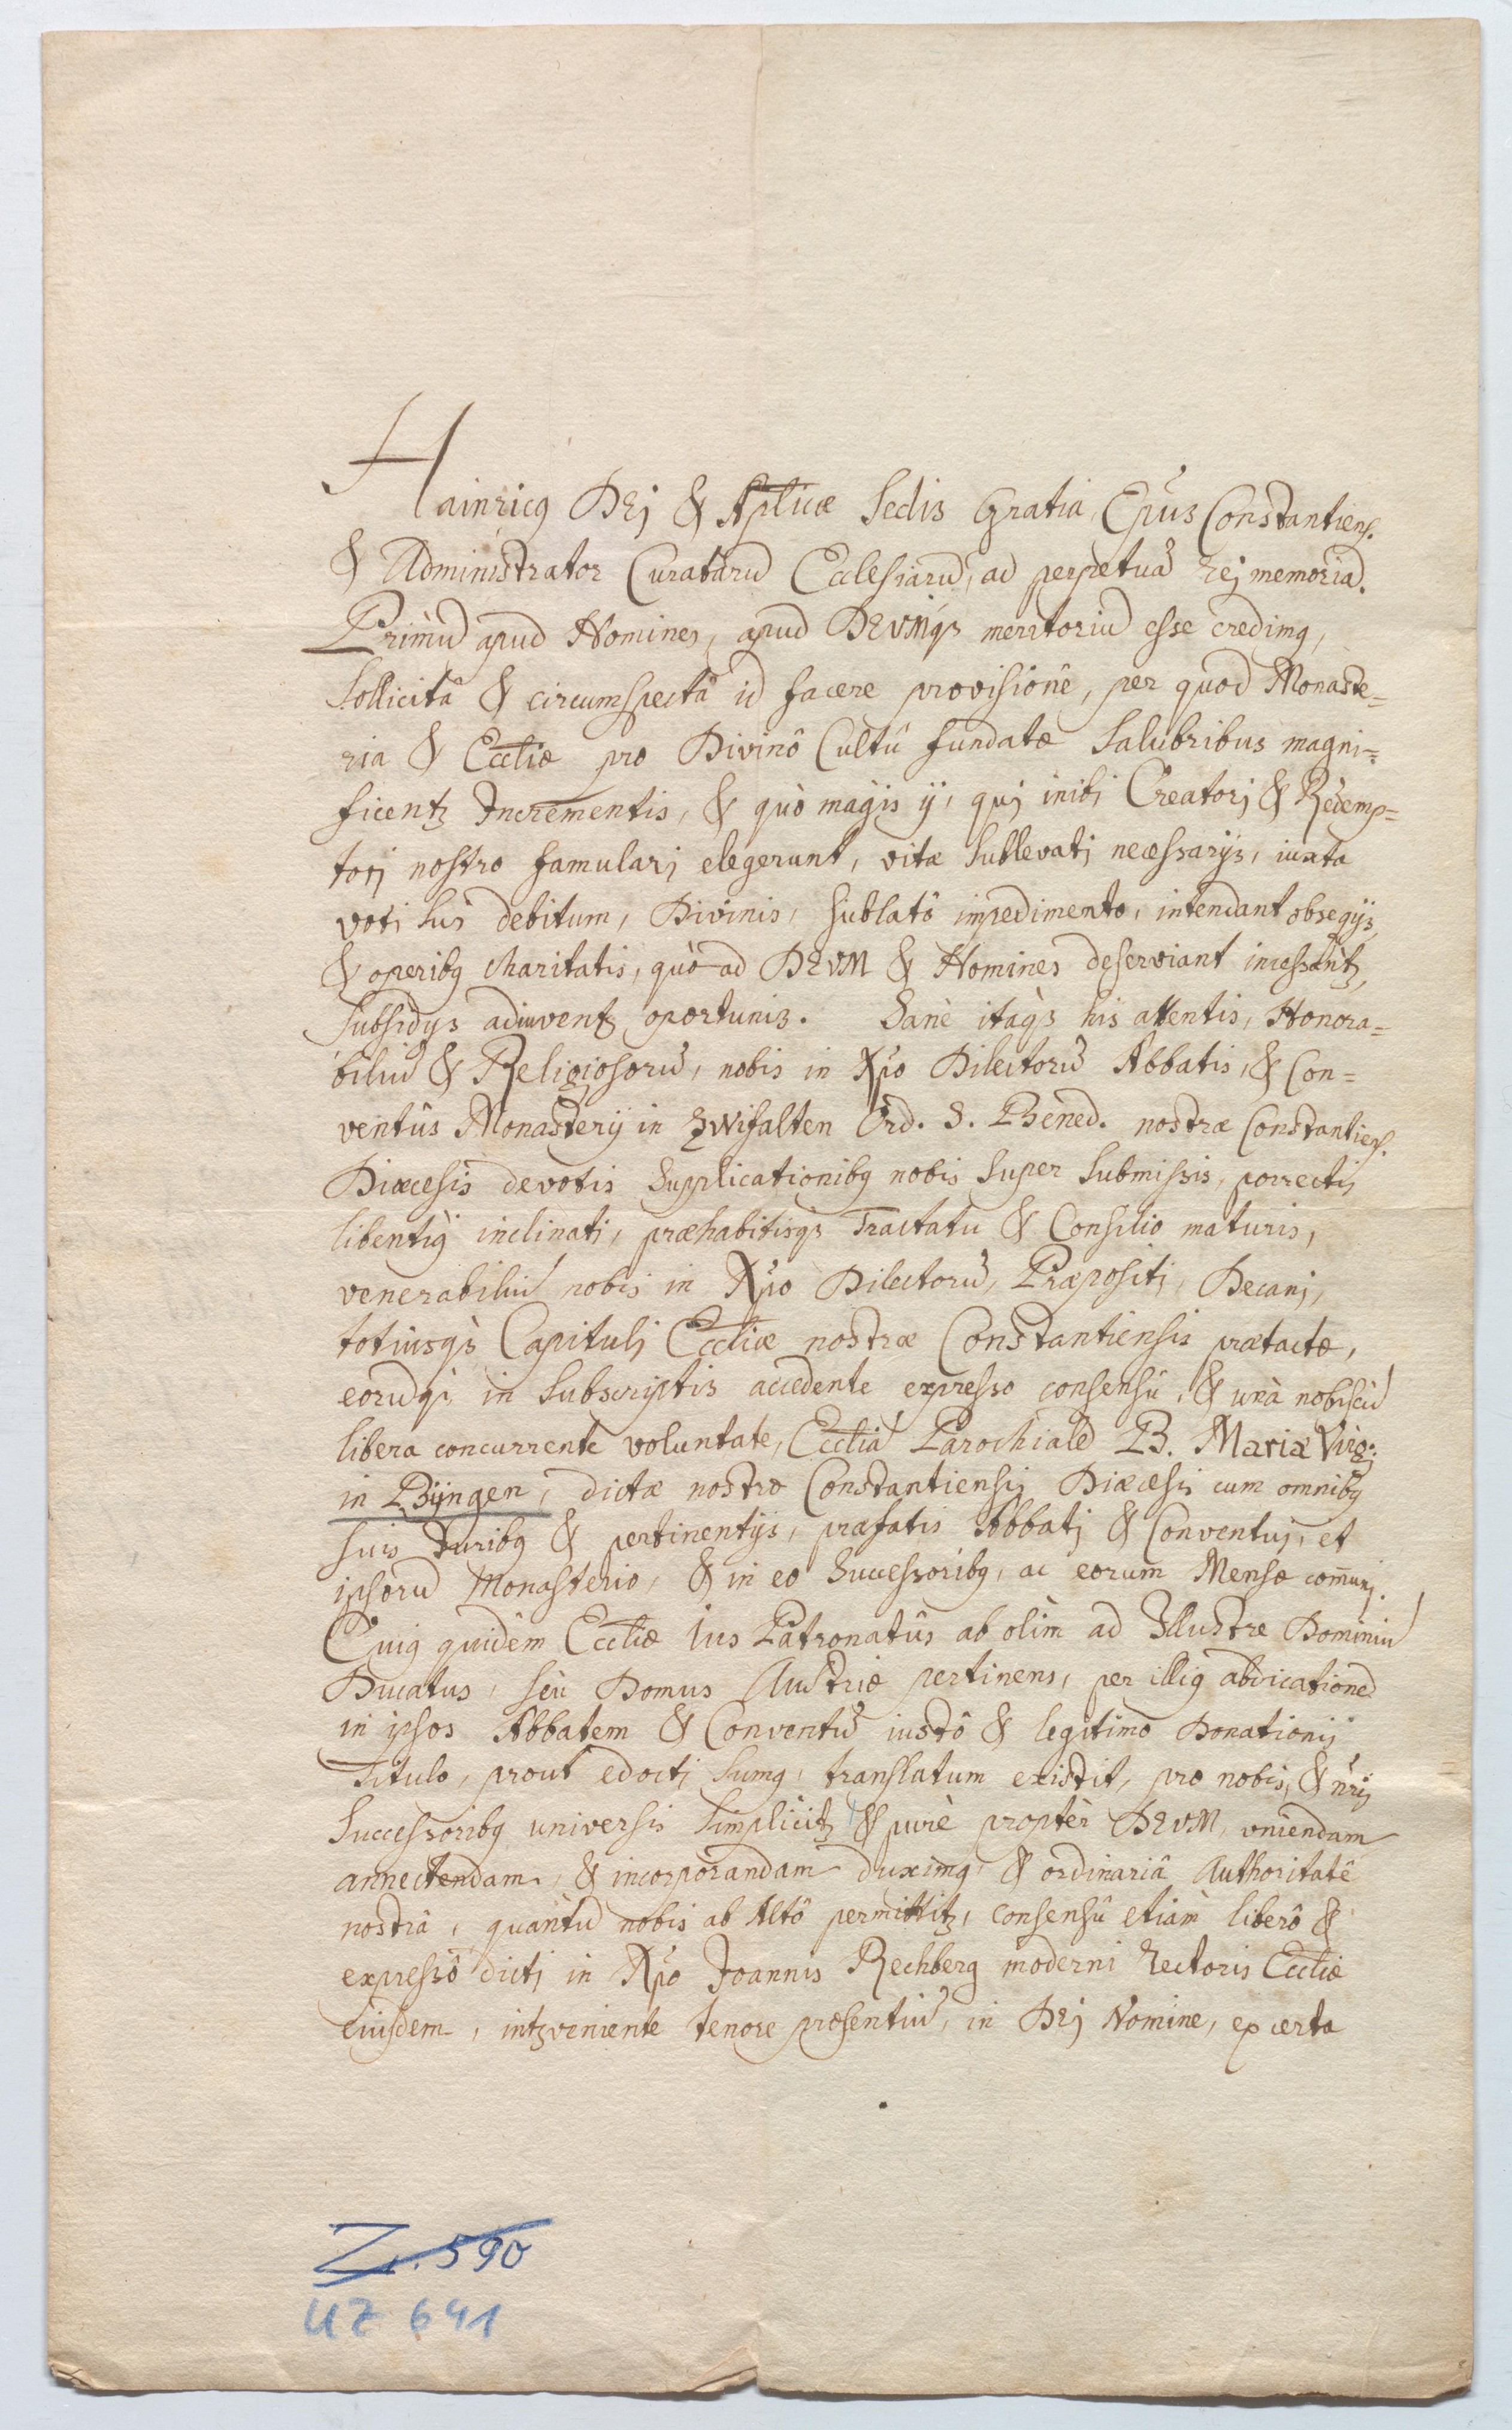 Hainricꝰ DEj & Aplicæ Sedis Gratia, Epũs Constantiens.
& Administrator Curatarũ Ecclesiarũ, ad perpetuã rej memoriã.
Primũ apud Homines, apud DEVMqꝫ meritoriũ esse credimꝰ,
sollicitâ & circumspectâ id facere provisionê, per quod Monaste=
ria & Eccliæ pro Divinô Cultû fundatæ salubribus magni=
ficentꝫ Incrementis, & quò magis ij, quj inibj Creatorj & Redemp=
torj nostro famularj elegerunt, vitæ sublevatj necessarijs, iuxta
voti sui debitum, Divinis, sublatô impedimento, intendant obseqijs,
& operibꝰ charitatis, quò ad DEVM & Homines deserviant incessantꝫ,
subsidijs adiuventꝫ oportunis. Sanè itaqꝫ his attentis, Honora=
biliũ & Religiosorũ, nobis in Xp̃o Dilectorũ Abbatis, & Con=
ventûs Monasterij in Zwifalten Ord. S. Bened. nostræ Constantiens.
Diœcesis devotis supplicationibꝰ nobis super submissis, porrectis
libentiꝰ inclinati, præhabitisqꝫ Tractatu & Consilio maturis,
venerabiliũ nobis in Xp̃o Dilectorũ, Præpositi, Decanj,
totiusqꝫ Capitulj Eccliæ nostræ Constantiensis prætactæ,
eorũqꝫ in subscriptis accedente expresso consensû, & unà nobiscũ
libera concurrente voluntate, Eccliã Parochialẽ B. Mariæ Virg:
in Bÿngen, dictæ nostræ Constantiensis Diæcesis cum omnibꝰ
suis Juribꝰ & pertinentijs, præfatis Abbatj & Conventuj, et
ipsorũ Monasterio, & in eo Successoribꝰ, ac eorum Mensæ com̃unj.
Cuiꝰ quidem Eccliæ Ius Patronatûs ab olim ad Illustre Dominiũ
Ducatus, seu Domus Austriæ pertinens, per illiꝰ abdicationẽ
in ipsos Abbatem & Conventũ iustô & legitimo Donationis
titulo, prout edocti sumꝰ, translatum existit, pro nobis, & nr̃is
Successoribꝰ universis simplicitꝫ & purè proptèr DEVM, vniendam
annectendam, & incorporandam duximꝰ, & ordinariâ Authoritatê
nostrâ, quantũ nobis ab Altô permittitꝫ, consensû etiàm liberô &
expressô dicti in Xp̃o Joannis Rechberg moderni Rectoris Eccliæ
eiusdem, intꝫveniente tenore præsentiũ, in DEj Nomine, ex certa
Z. 590
UZ 641